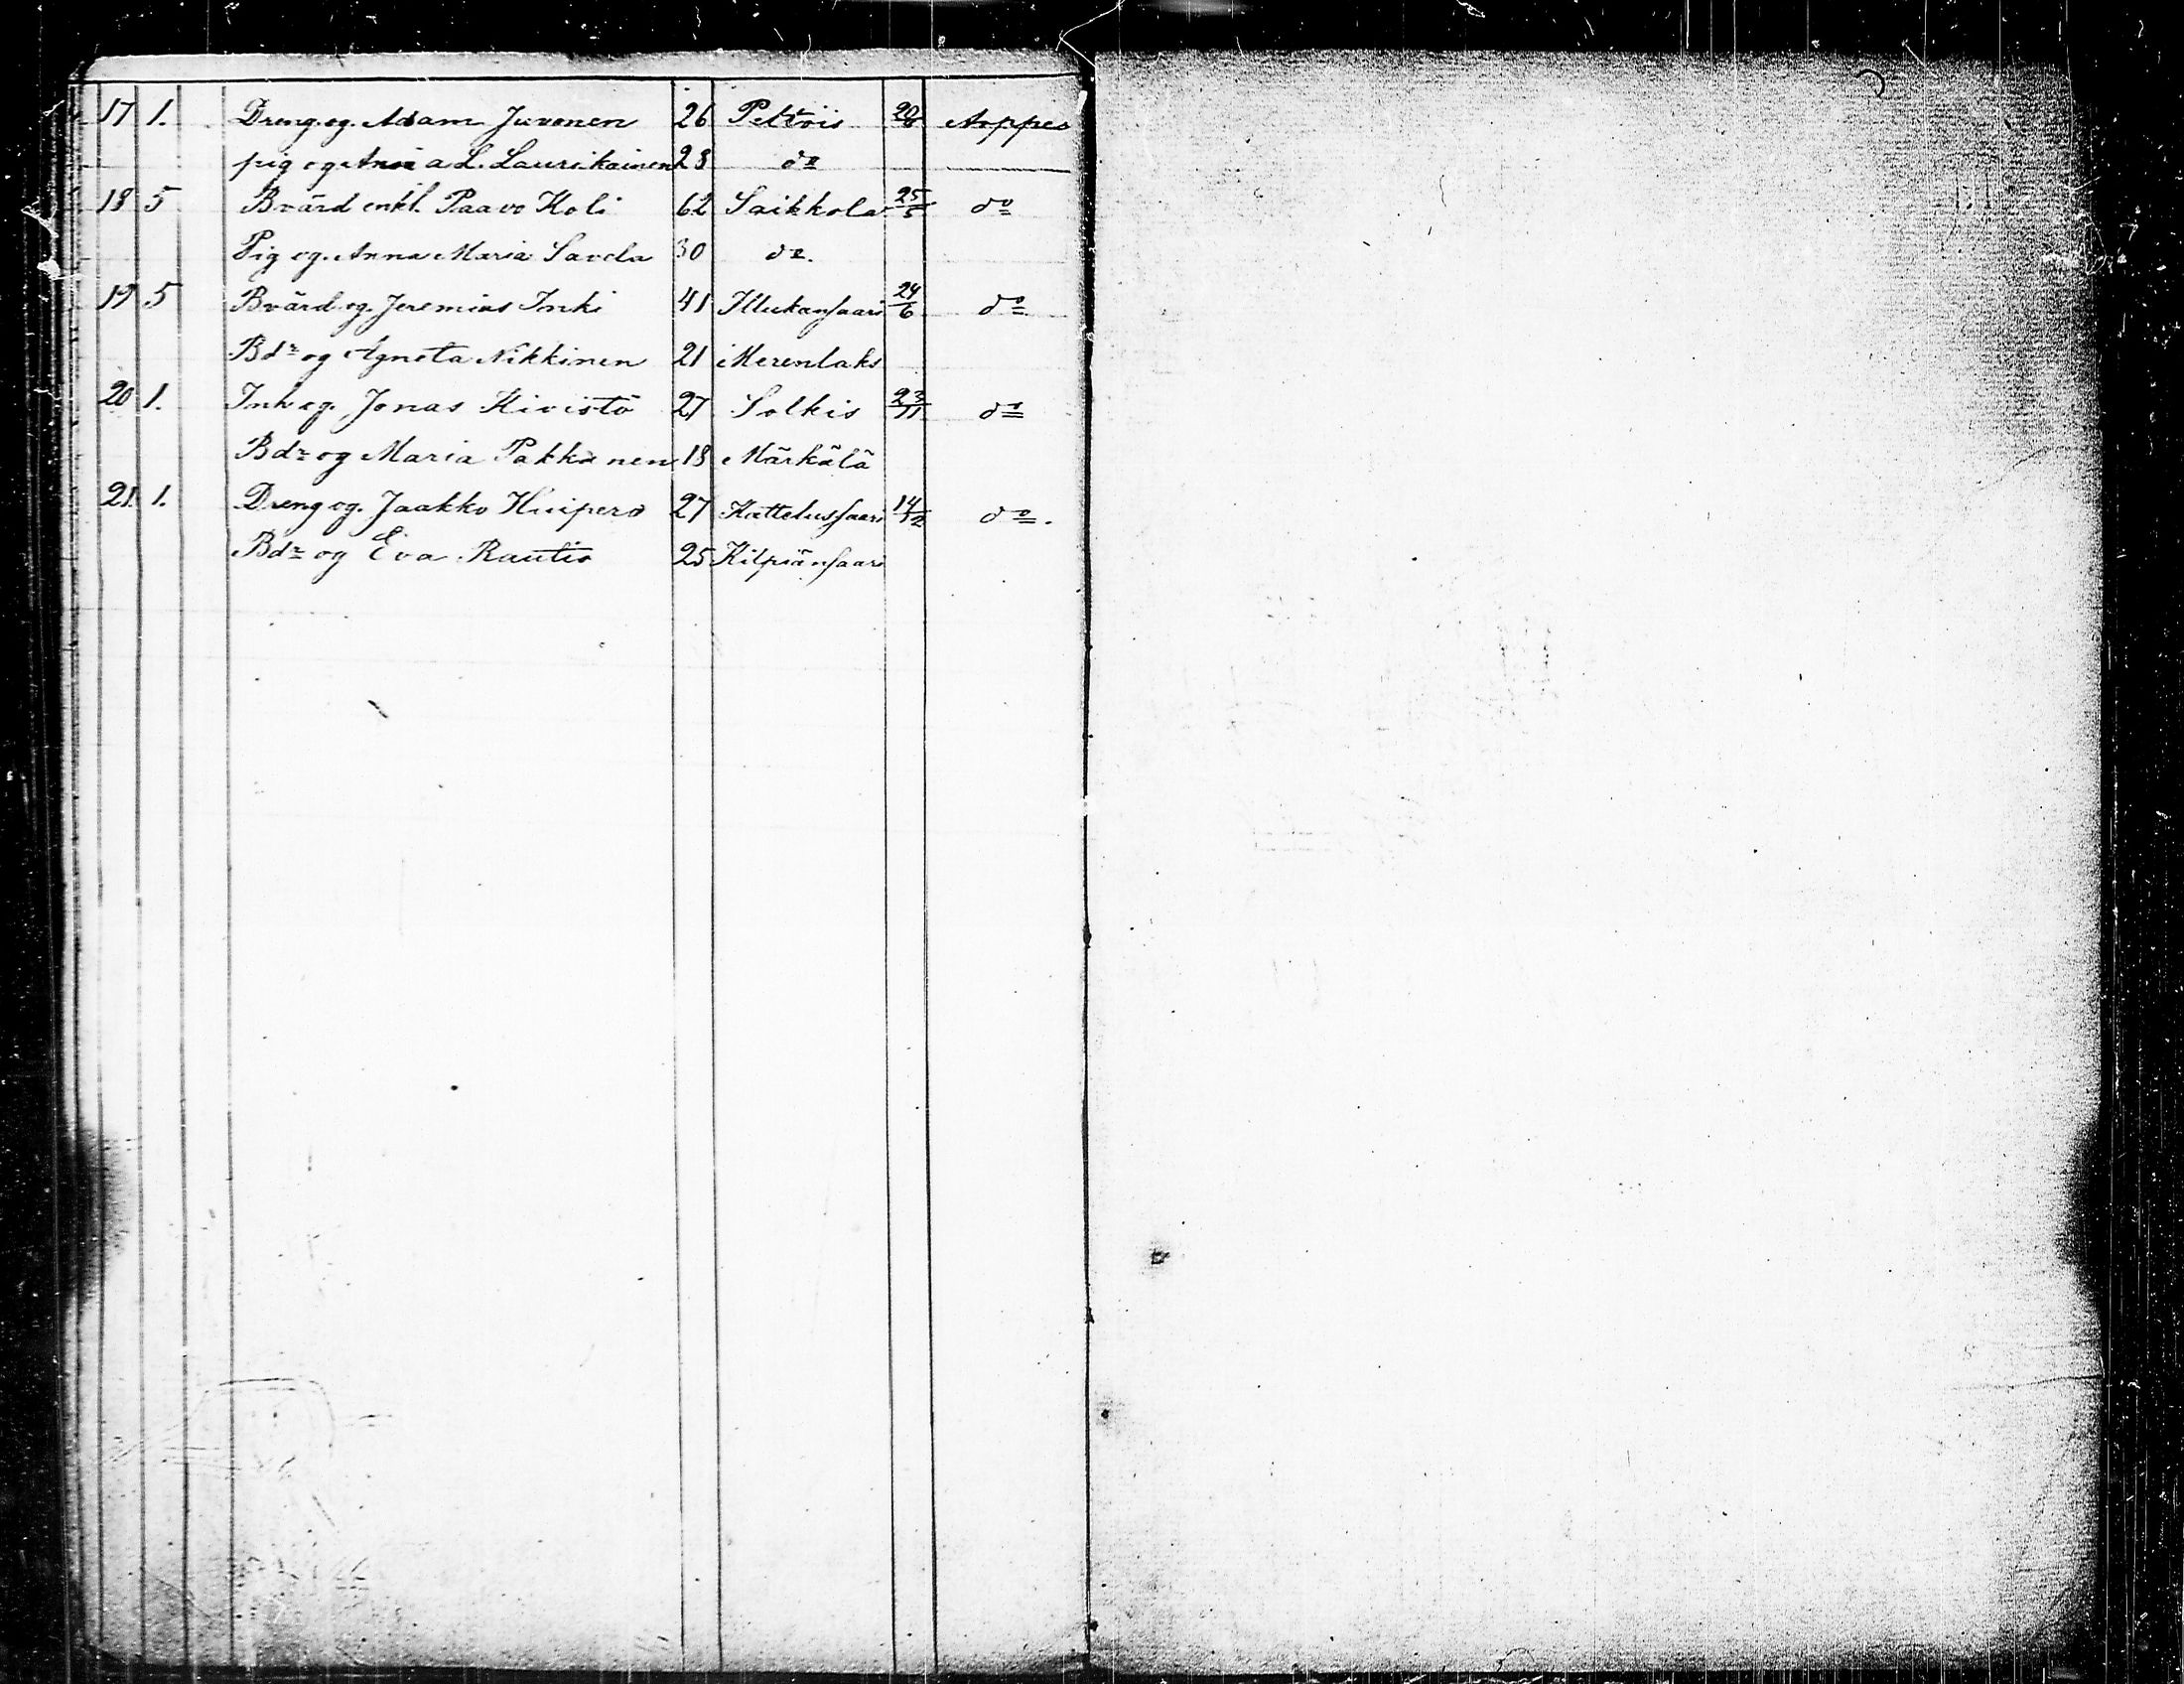 17 1. Dreng. og. Adam Juvonen 26 Pettöis 20/8 Appes
pig og Anna L. Laurikainen 23 do
18 5 Bvärd enkl. Paavo Koli 62 Saikkola 25/5 do
Pig og. Anna Maria Savola 30 do.
19 5 Bvärd og. Jeremias Inki 41 Illukansaari 24/6 do
Bdr og Agneta Nikkinen 21 Merenlaks
20 1. Inh og. Jonas Kivistö 27 Solkis 23/11 do
Bdr og Maria Pakkanen 18 Märkälä
21. 1. Dreng og. Jaakko Huipero 27 Kattelussaari 14/12 do.
Bdr og Eva Rautio 25 Kilpiänsaari